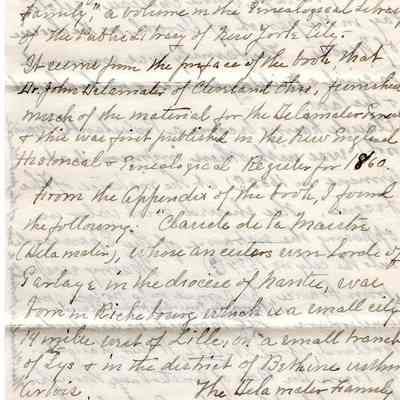 Family," a volume in the Genealogical Library
of the Public Library of New York City.
It seems from the preface of the book, that
Dr. John Delamater of Cleveland Ohio, furnished
much of the material for the Delamater Genea
& this was first published in the New England
Historical & Genealogical Register for 1860.
From the Appendix of the book, I found
the following: "Claude de la Maistre
(Delamater), whose ancestors were Lords of
Garlaye in the diocese of Nantes, was
born in Richebourg which is a small city
14 miles west of Lille, on a small branch
of Lys & in the district of Bethune within
Artois. The Delamater Family